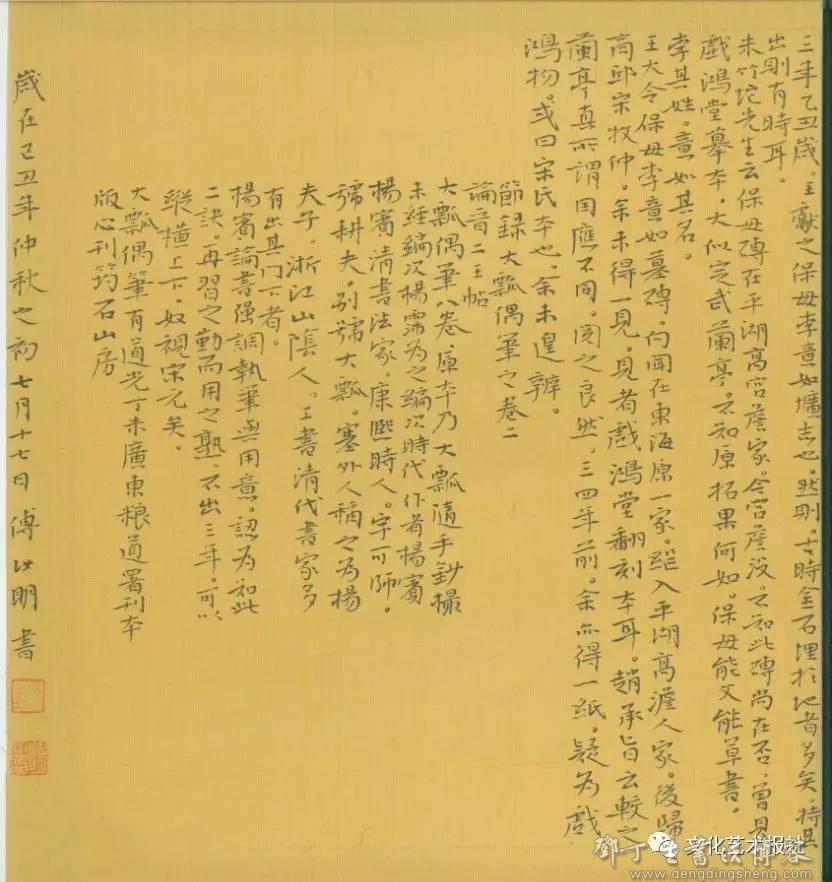 三年乙丑歲。王獻之保母李意如壙志也。然則。古時金石埋於地者多矣。特其
出則有時耳。
朱竹垞先生云保母磚在平湖高宮詹家。今宮詹沒。不知此磚尚在否。曾見
戲鴻堂摹本。大似定武蘭亭。不知原拓果何如。保母能文能草書。
李其姓。意如其名。
王大令保母李意如墓磚。向聞在東海原一家。繼入平湖高澹人家。後歸
商邱宋牧仲。余未得一見。見者戲鴻堂翻刻本耳。趙承旨云較之
蘭亭真所謂因應不同。閱之良然。三四年前。余亦得一紙。疑為戲
鴻物。或曰宋氏本也。余未遑辨。
節錄大瓢偶筆之卷二
論晉二王帖
大瓢偶筆八卷。原本乃大瓢隨手鈔撮
未經編次楊霈為之編次時代作者楊賓
楊賓清書法家。康熙時人。字可師。
號耕夫。別號大瓢。塞外人稱之為楊
夫子。浙江山陰人。工書清代書家多
有出其門下者。
楊賓論書强調執筆與用意。認為知此
二訣。再習之勤而用之熟。不出三年。可以
縱橫上下。奴視宋元矣。
大瓢偶筆有道光丁未廣東粮道署刊本
版心刊筠石山房
歲在己丑年仲秋之初七月十七日傅以明書
文化艺术报社
鄧丁生書法博客
www.dengdingsheng.com